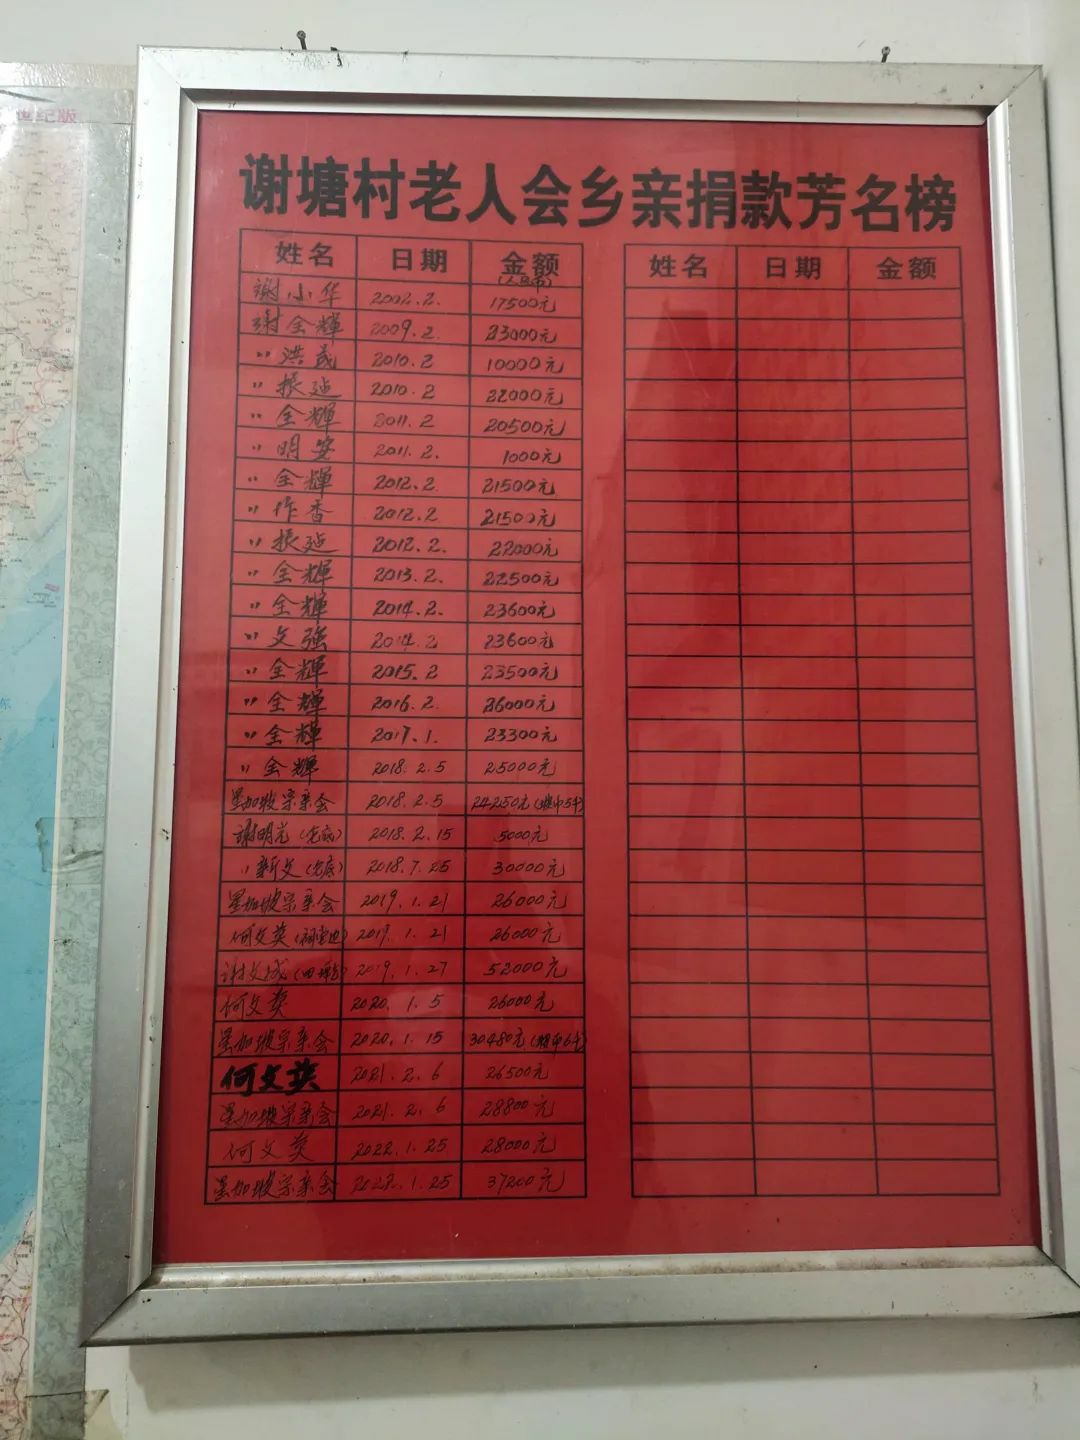 世纪版
谢塘村老人会乡亲捐款芳名榜
姓名 日期 金额 姓名 日期 金额
(人民币)
謝小华 2002.2. 17500元
谢全輝 2009.2. 23000元
〃洪 2010.2 10000元
〃振 2010.2 22000元
〃全輝 2011.2 20500元
〃明安 2011.2. 1000元
〃全輝 2012.2 21500元
〃作香 2012.2 21500元
〃振 2012.2. 22000元
〃全輝 2013.2. 22500元
〃全輝 2014.2. 23600元
〃文强 2014.2 23600元
〃全輝 2015.2 23500元
〃全輝 2016.2. 26000元
〃全輝 2017.1. 23300元
〃全輝 2018.2.5 25000元
星加坡宗亲会 2018.2.5 24250元(坡币5千)
謝明光( 2018.2.15 5000元
〃新文( 2018.7.25 30000元
星加坡宗亲会 2019.1.21 26000元
何文英( 2019.1.21 26000元
谢文城( 2019.1.27 52000元
何文英 2020.1.5 26000元
星加坡宗亲会 2020.1.15 30480元(坡币6千)
何文英 2021.2.6 26500元
星加坡宗亲会 2021.2.6 28800元
何文英 2022.1.25 28000元
星加坡宗亲会 2022.1.25 37200元